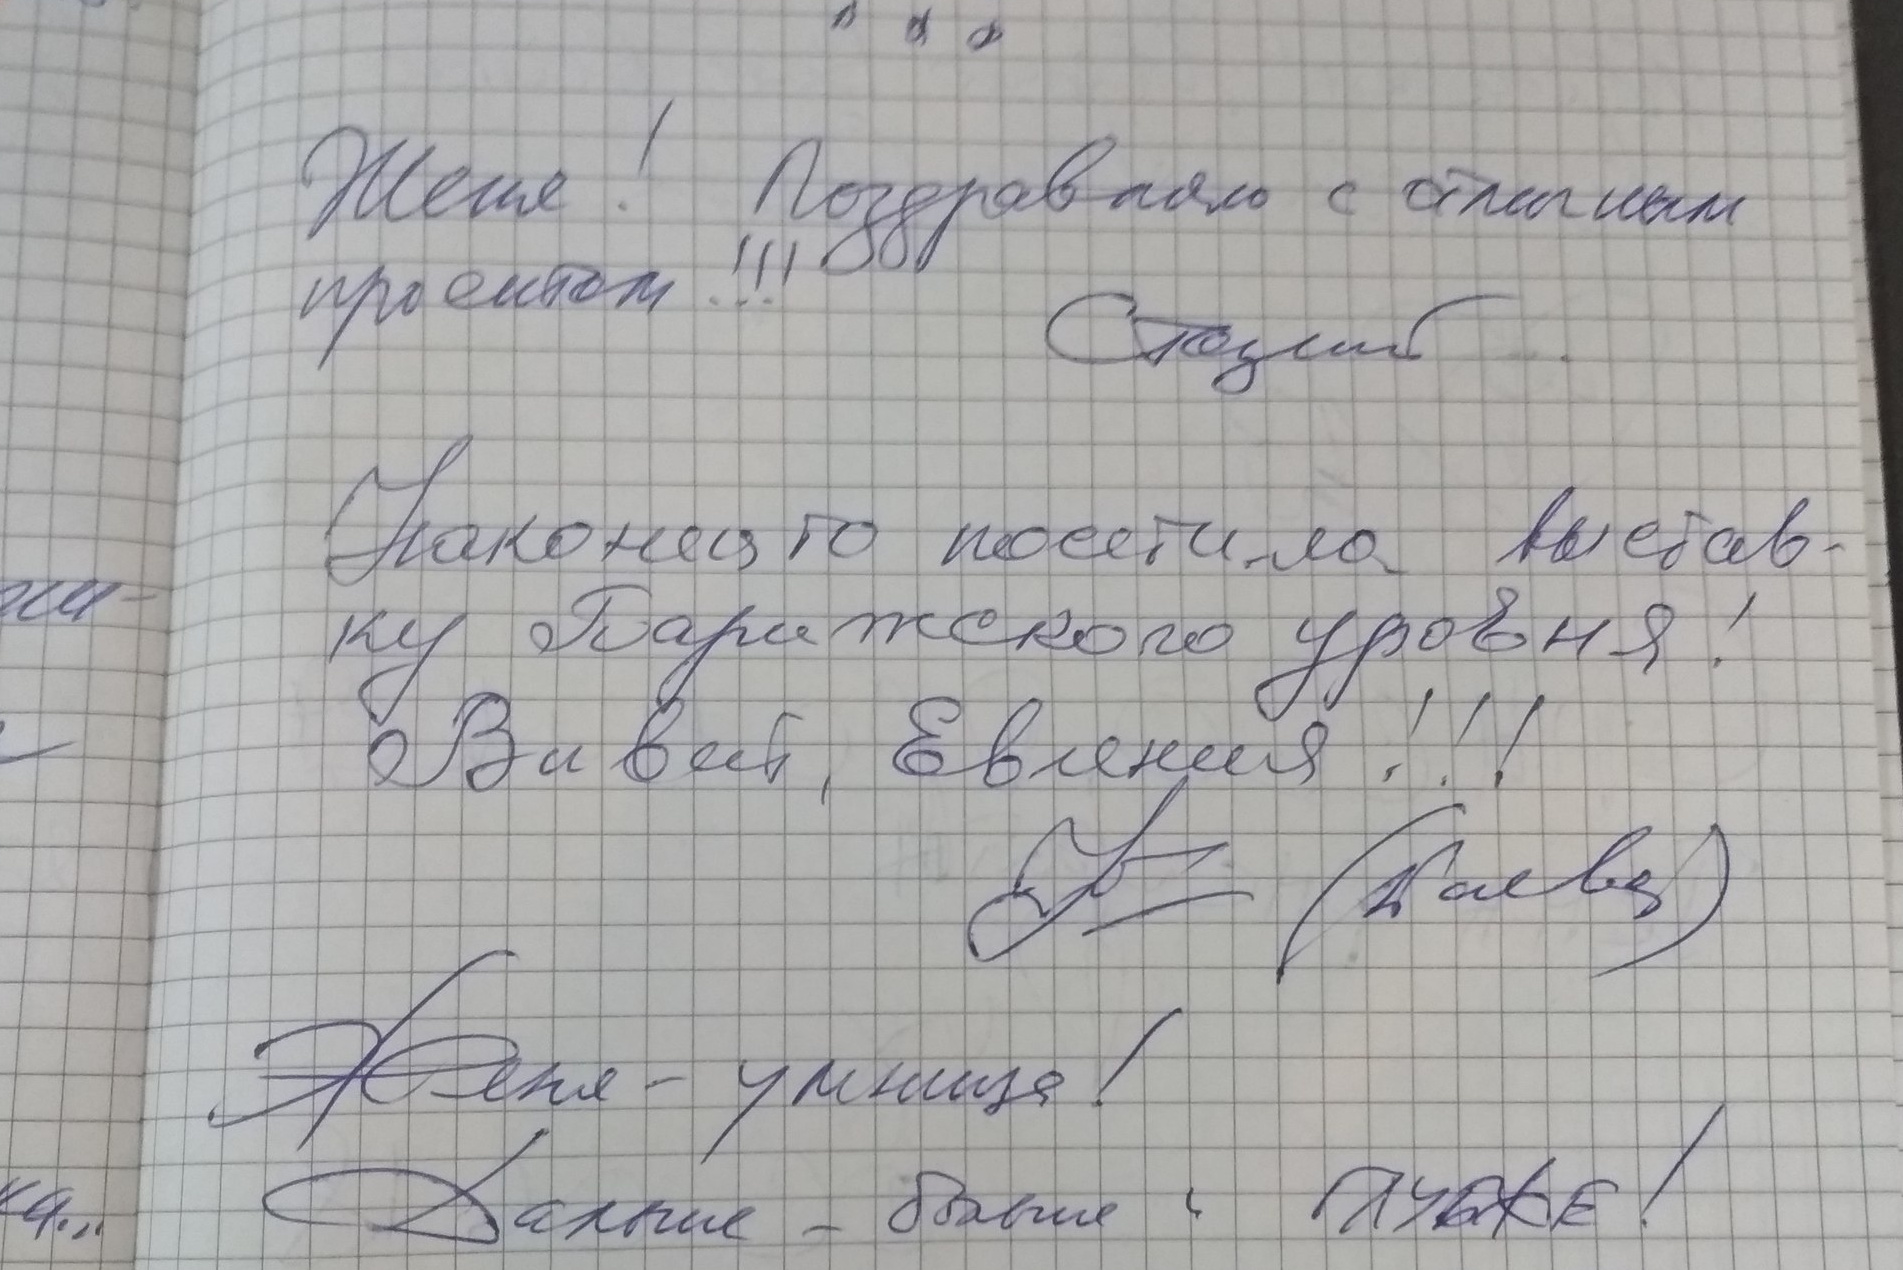 Женя! Поздравляю с отличным
проектом!!!
Стацкий
Наконец то посетила выстав-
ку Парижского уровня!
Виват, Евгения!!!
(Баева)
Женя - умница!
Дальше - больше и ГЛУБЖЕ!